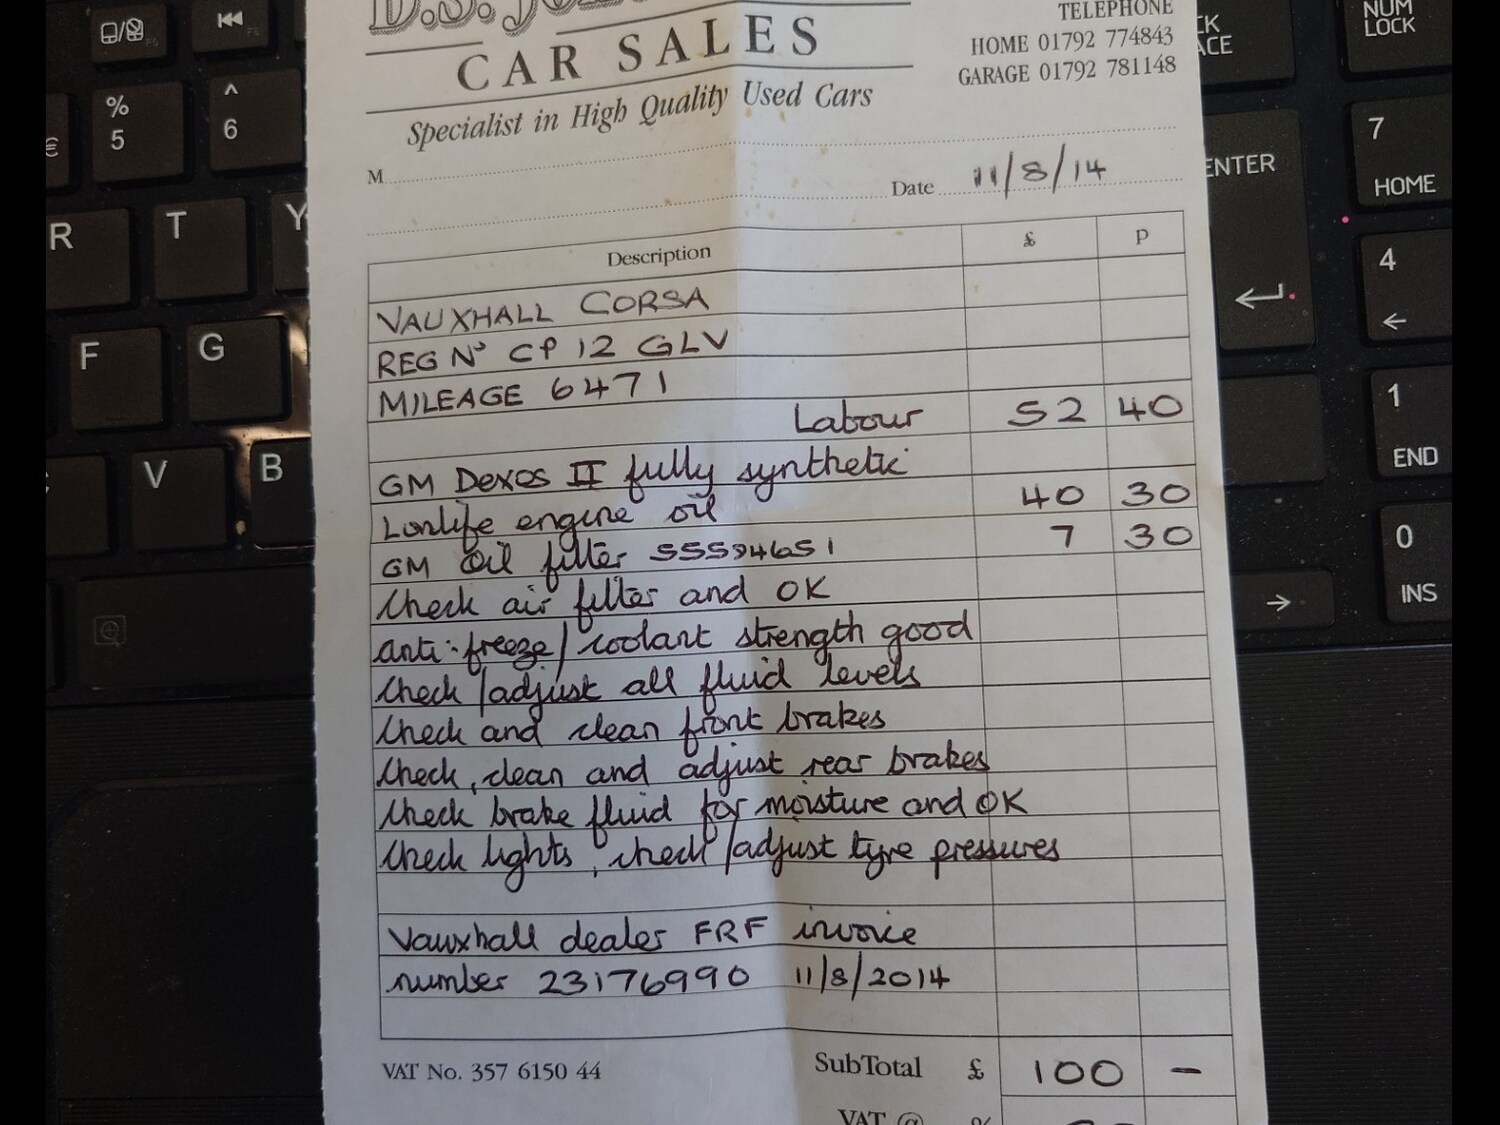 D.S.
CAR SALES
Specialist in High Quality Used Cars
TELEPHONE
HOME 01792 774843
GARAGE 01792 781148
M
Date 11/8/14
Description £ P
VAUXHALL CORSA
REG Nº CP 12 GLV
MILEAGE 6471
Labour 52 40
GM Dexos II fully synthetic
Lonlife engine oil 40 30
GM Oil filter 55594651 7 30
Check air filter and OK
anti-freeze/coolant strength good
Check/adjust all fluid levels
Check and clean front brakes
Check, clean and adjust rear brakes
Check brake fluid for moisture and OK
Check lights, check/adjust tyre pressures
Vauxhall dealer FRF invoice
number 23176990 11/8/2014
VAT No. 357 6150 44
SubTotal £ 100 -
VAT @ %
% 5
^ 6
€
R T Y
F G
V B
NUM LOCK
7 HOME
ENTER
4 ←
1 END
0 INS
→